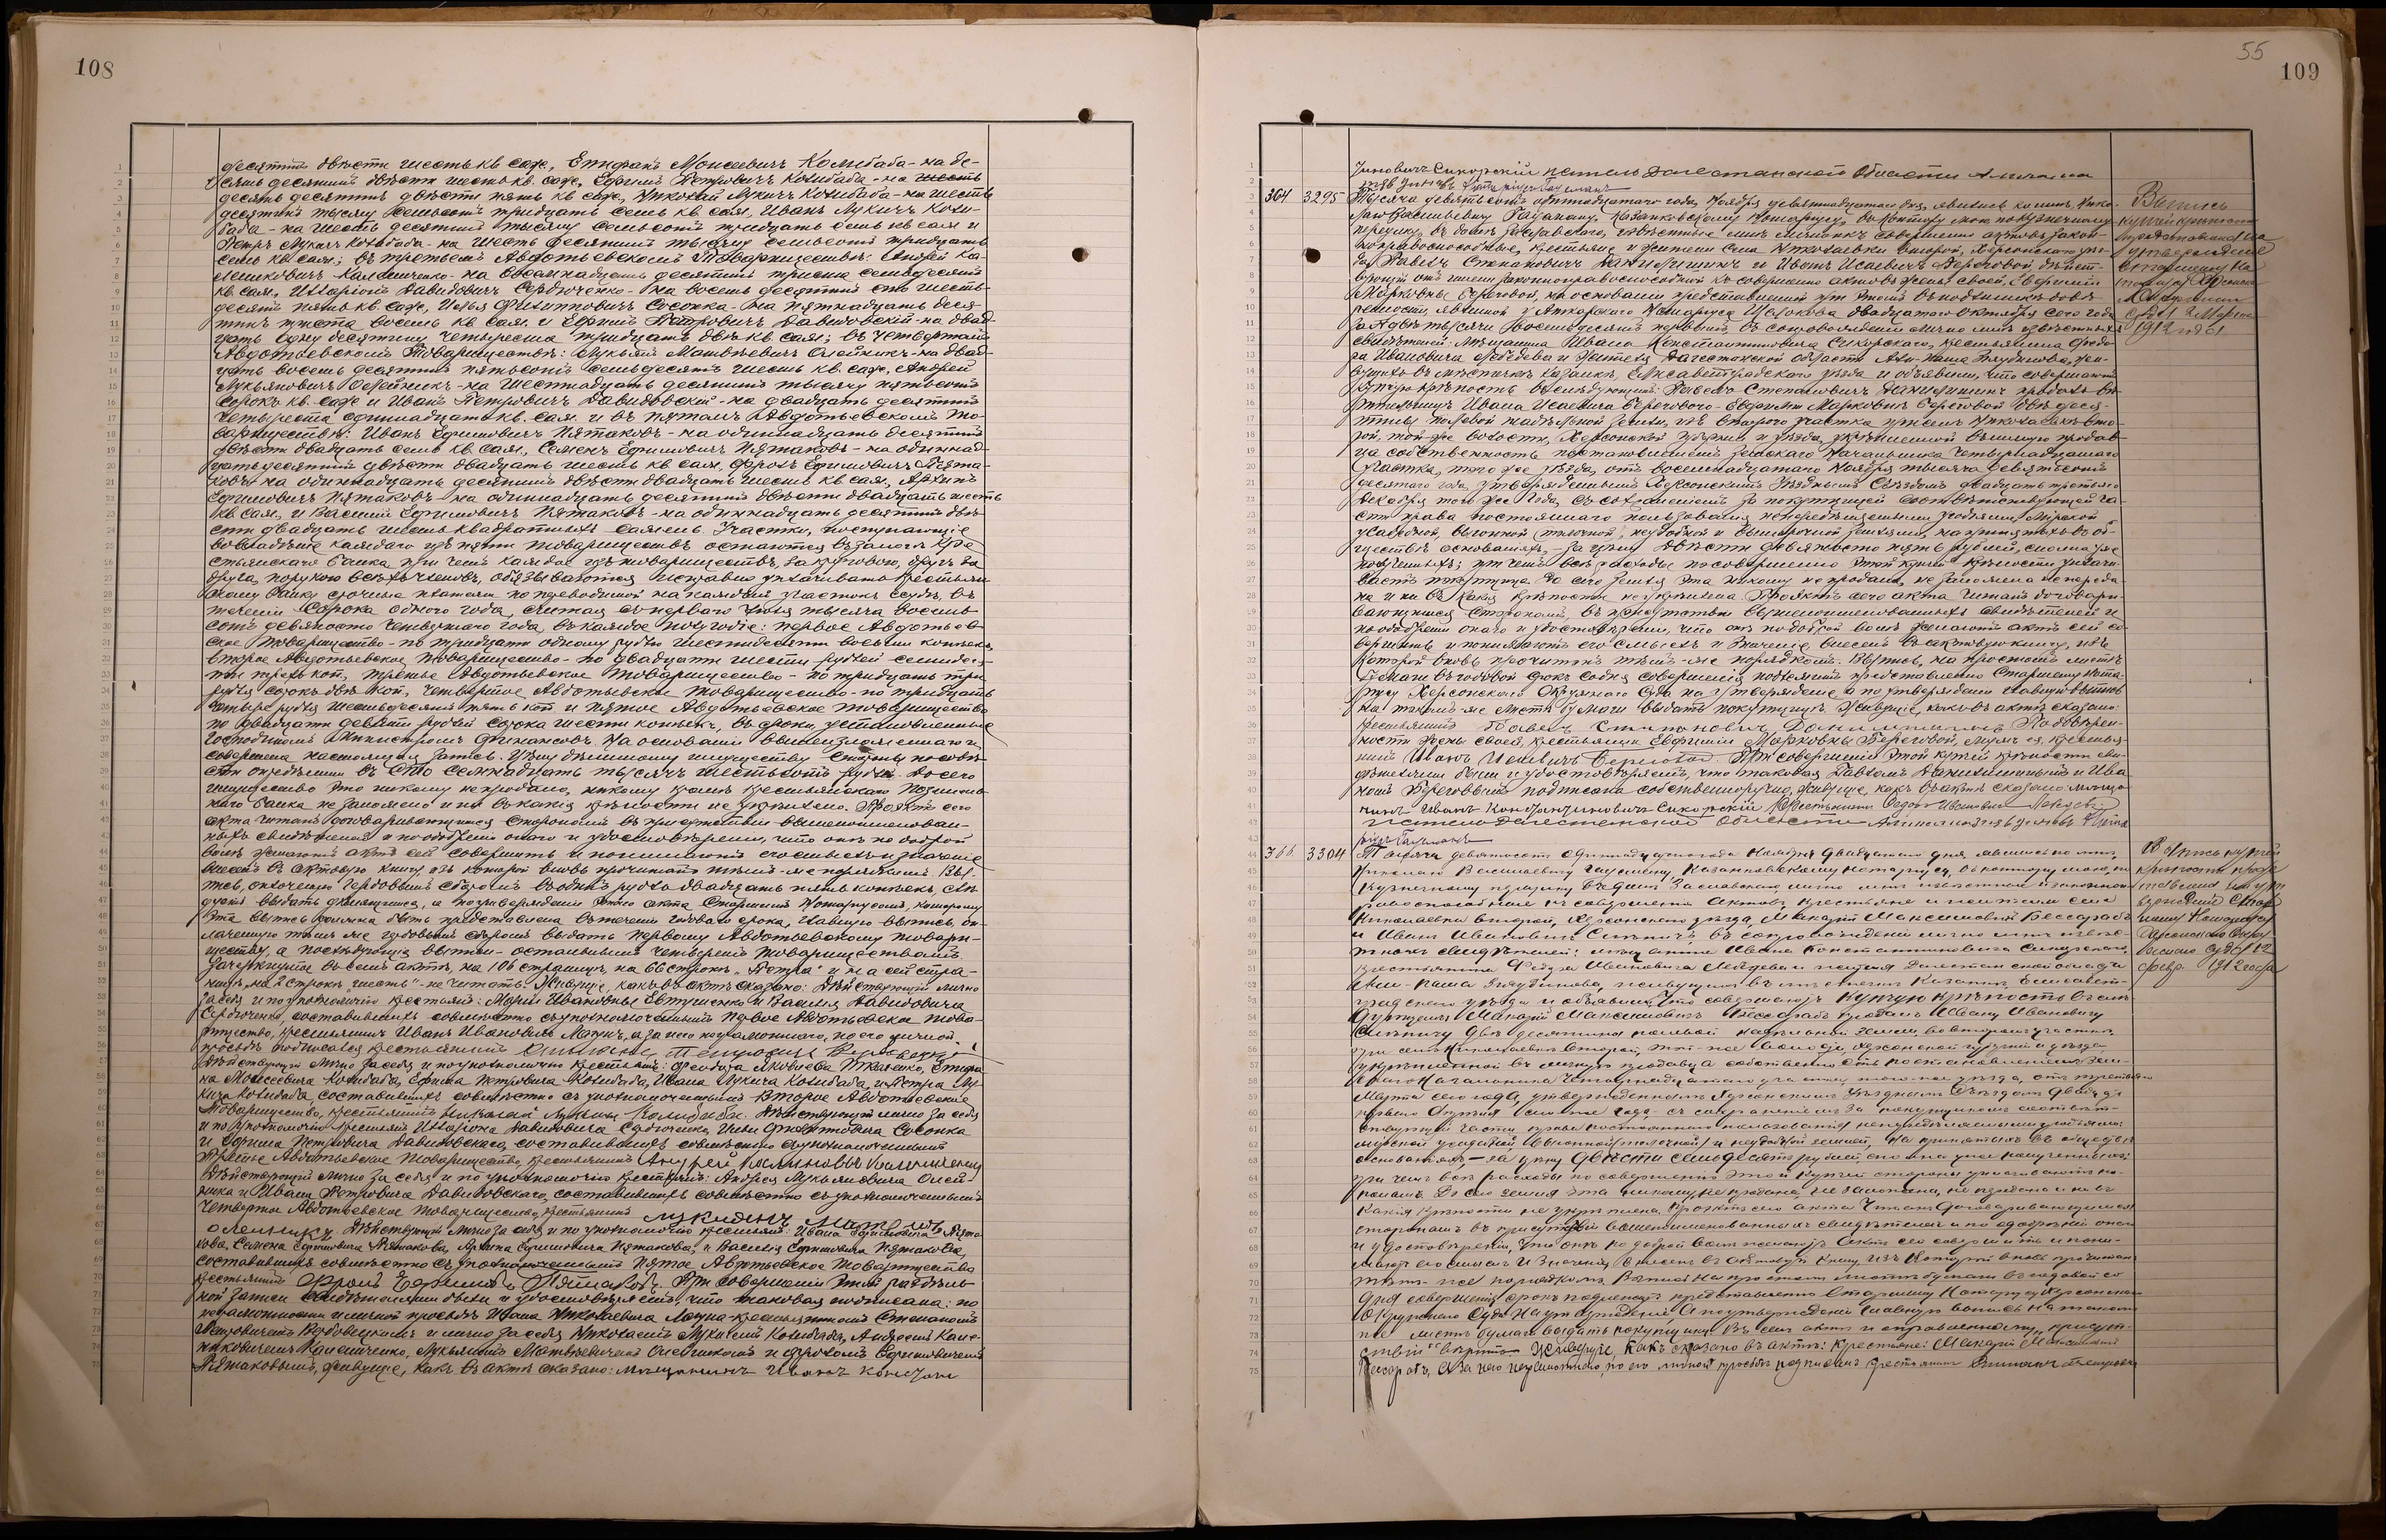 108
десятинъ двѣсти шесть кв. саж., Епифанъ Моисеевичъ Колибаба - на де-
сять десятинъ двѣсти шесть кв. саж., Ефимъ Петровичъ Колибаба - на шесть
десять десятинъ двѣсти пять кв. саж., Николай Лукичъ Колибаба - на шесть
десятинъ тысячу семьсотъ тридцать семь кв. саж., Иванъ Лукичъ Коли-
баба - на шесть десятинъ тысячу семьсотъ тридцать семь кв. саж. и
Петръ Лукичъ Колибаба - на шесть десятинъ тысячу семьсотъ тридцать
семь кв. саж.; въ третьемъ Авдотьевскомъ Товариществѣ: Андрей Ка-
линковичъ Калиниченко - на восемнадцать десятинъ триста семьдесятъ
кв. саж., Илларіонъ Давидовичъ Сердюченко - на восемь десятинъ сто шесть-
десятъ пять кв. саж., Илья Филипповичъ Сосонка - на пятнадцать деся-
тинъ триста восемь кв. саж. и Ефимъ Петровичъ Давидовскій - на двад-
цать одну десятину четыреста тридцать двѣ кв. саж.; въ четвертомъ
Авдотьевскомъ Товариществѣ: Лукьянъ Матвѣевичъ Олейникъ - на двад-
цать восемь десятинъ пятьсотъ семьдесятъ шесть кв. саж., Андрей
Лукьяновичъ Олейникъ - на шестнадцать десятинъ тысячу пятьсотъ
сорокъ кв. саж. и Иванъ Петровичъ Давидовскій - на двадцать десятинъ
четыреста одиннадцать кв. саж. и въ пятомъ Авдотьевскомъ То-
вариществѣ: Иванъ Ефимовичъ Пятаковъ - на одиннадцать десятинъ
двѣсти двадцать семь кв. саж., Семенъ Ефимовичъ Пятаковъ - на одиннад-
цать десятинъ двѣсти двадцать шесть кв. саж., Фролъ Ефимовичъ Пята-
ковъ на одиннадцать десятинъ двѣсти двадцать шесть кв. саж., Архипъ
Ефимовичъ Пятаковъ на одиннадцать десятинъ двѣсти двадцать шесть
кв. саж. и Василій Ефимовичъ Пятаковъ - на одиннадцать десятинъ двѣ-
сти двадцать шесть квадратныхъ сажень. Участки, поступающіе
во владѣніе каждаго изъ пяти товариществъ остаются въ залогѣ Кре-
стьянскаго Банка, при чемъ каждое изъ товариществъ, за круговою, другъ за
друга, порукою всѣхъ членовъ, обязываются исправно уплачивать Крестьян-
скому Банку срочные платежи по переводимой на каждый участокъ ссудѣ, въ
теченіи сорока одного года, считая съ перваго Іюля тысяча восемь-
сотъ девяносто четвертаго года, въ каждое полугодіе: первое Авдотьев-
ское Товарищество - по тридцати одному рублю шестидесяти восьми копѣекъ,
второе Авдотьевское товарищество - по двадцати шести рублей семидеся-
ти трехъ коп., третье Авдотьевское Товарищество - по тридцати три
рубля сорокъ двѣ коп., четвертое Авдотьевское товарищество - по тридцать
четыре рубля шестьдесятъ пять коп. и пятое Авдотьевское товарищество
по двадцати девяти рублей сорока шести копѣекъ, въ сроки, установленные
Господиномъ Министромъ Финансовъ. На основаніи вышеизложеннаго и
совершена настоящая запись. Цѣну дѣлимому имуществу стороны по совѣ-
сти опредѣлили въ сто семнадцать тысячъ шестьсотъ рублей. До сего
имущество это никому не продано, никому кромѣ Крестьянскаго Поземель-
наго Банка не заложено и ни въ какія крѣпости не укрѣплено. Проектъ сего
акта читанъ договаривающимся сторонамъ въ присутствіи вышепоименован-
ныхъ свидѣтелей и по одобреніи онаго и удостовѣреніи, что онѣ по доброй
волѣ желаютъ актъ сей совершить и понимаютъ его смыслъ и значеніе
внесенъ въ актовую книгу, изъ которой вновь прочитанъ тѣмъ-же порядкомъ. Вы-
выдать
Эта выпись должна быть представлена въ теченіи годоваго срока, главную выпись, оп-
лаченную такимъ же гербовымъ сборомъ выдать первому Авдотьевскому товари-
ществу, а послѣдующія выписи - остальнымъ четыремъ товариществамъ.
Зачеркнутое въ семъ актѣ, на 106 страницѣ, на 66 строкѣ "Петра" и на сей стра-
ницѣ, на 2 строкѣ "шесть" - не читать. Живущіе, какъ въ актѣ сказано: Дѣйствующій лично
за себя и по уполномочію крестьянъ: Маріи Ивановны Евтушенко и Василія Давидовича
Сердюченко, составившихъ совмѣстно съ уполномоченнымъ Первое Авдотьевское Това-
рищество, крестьянинъ Иванъ Ивановичъ Мацукъ, а за него неграмотнаго, по его личной
просьбѣ подписался крестьянинъ
Дѣйствующій лично за себя и по уполномочію крестьянъ: Феодора Яковлева Ткаченко, Епифа-
на Моисеевича Колибаба, Ефима Петровича Колибаба, Ивана Лукича Колибаба, и Петра Лу-
кича Колибаба составившихъ совмѣстно съ уполномоченнымъ Второе Авдотьевское
Товарищество, крестьянинъ Николай Лукичъ Колибаба. Дѣйствующій лично за себя
и по уполномочію крестьянъ Илларіона Давидовича Сердюченко, Ильи Филипповича Сосонка
и Ефима Петровича Давидовскаго, составившихъ совмѣстно съ уполномоченнымъ
Третье Авдотьевское Товарищество, крестьянинъ Андрей
Дѣйствующій лично за себя и по уполномочію крестьянъ: Андрея Лукьяновича Олей-
ника и Ивана Петровича Давидовскаго, составившихъ совмѣстно съ уполномоченнымъ
Четвертое Авдотьевское Товарищество, крестьянинъ
Дѣйствующій лично за себя и по уполномочію крестьянъ: Ивана Ефимовича Пята-
кова, Семена Ефимовича Пятакова, Архипа Ефимовича Пятакова, и Василія Ефимовича Пятакова,
составившихъ совмѣстно съ уполномоченнымъ Пятое Авдотьевское Товарищество
крестьянинъ Фролъ Ефимовъ Пятаковъ. При совершеніи этой раздѣль-
ной записи свидѣтелями были и удостовѣряемъ, что таковая подписана: по
неграмотности и личной просьбѣ Ивана Ивановича Мацука - крестьяниномъ
и лично за себя Николаемъ Лукичемъ Колибаба, Андреемъ Кали-
никовичемъ Калиниченко, Лукьяномъ Матвѣевичемъ Олейникомъ и Фроломъ Ефимовичемъ
Пятаковымъ, живущіе, какъ въ актѣ сказано: мѣщанинъ Иванъ Констан
55
109
тиновичъ Сикорскій житель Дагестанской Области
364 3295 Тысяча девятьсотъ одиннадцатаго года, Ноября девятнадцатаго дня, явились ко мнѣ, Нико-
лаю Васильевичу Гаусману, Казанковскому Нотаріусу, въ контору мою по Кузнечному
переулку, въ домѣ Заславскаго, извѣстные мнѣ лично и къ совершенію актовъ закон-
ноправоспособные, крестьяне и жители села Николаевки Второй, Херсонскаго уѣз-
да, Павелъ Степановичъ Данилишинъ и Иванъ Исаевичъ Береговой, дѣйст-
вующій отъ имени законноправоспособной къ совершенію актовъ жены своей, Евфиміи
Марковны Береговой, на основаніи представленной при этомъ въ подлинникѣ довѣ-
ренности, явленной у Ананьевскаго Нотаріуса двадцатаго октября сего года
за № двѣ тысячи восемьдесятъ первымъ въ сопровожденіи лично мнѣ извѣстныхъ
свидѣтелей: мѣщанина Ивана Константиновича Сикорскаго, крестьянина Федо-
ра Ивановича Лебедева и жителя Дагестанской области Али-Паша Зяудинова, жи-
вущихъ въ мѣстечкѣ Казанкѣ, Елисаветградскаго уѣзда и объявили, что совершаютъ
купчую крѣпость въ слѣдующемъ: Павелъ Степановичъ Данилишинъ продалъ до-
вѣрительницѣ Ивана Исаевича Берегового - Евфиміи Марковнѣ Береговой двѣ деся-
тины полевой надѣльной земли, изъ втораго участка при селѣ Николаевкѣ Вто-
рой, той же волости, Херсонской губерніи и уѣзда, укрѣпленной въ личную продав-
ца собственность постановленіемъ Земскаго Начальника четырнадцатаго
участка, того же уѣзда, отъ восемнадцатаго Ноября тысяча девятьсотъ
десятаго года, утвержденнымъ Херсонскимъ Уѣзднымъ Съѣздомъ двадцать третьяго
декабря того же года, съ сохраненіемъ за покупщицей соотвѣтствующей ча-
сти права постояннаго пользованія непередѣляемыми угодьями: мірской
усадебной, выгонной, толочной, неудобной и землями, на принятыхъ въ об-
ществѣ основаніяхъ, за цѣну двѣсти девяносто пять рублей, сполна уже
полученныхъ; при чемъ всѣ расходы по совершенію этой купчей крѣпости уплачи-
ваетъ покупщица. До сего земля эта никому не продана, не заложена не переда-
на и ни въ какія крѣпости не укрѣплена. Проектъ сего акта читанъ договари-
вающимся сторонамъ, въ присутствіи вышепоименованныхъ свидѣтелей и
по одобреніи онаго и удостовѣреніи, что онѣ по доброй волѣ желаютъ актъ сей со-
вершить и понимаютъ его смыслъ и значеніе внесенъ въ актовую книгу, изъ
которой вновь прочитанъ тѣмъ-же порядкомъ. Выпись, на простомъ листѣ
бумаги въ годовой срокъ со дня совершенія подлежитъ представленію Старшему Нота-
ріусу Херсонскаго Окружнаго Суда на утвержденіе, а по утвержденіи главную выпись
на такомъ-же листѣ бумаги выдать покупщицѣ. Живущіе, какъ въ актѣ сказано:
крестьянинъ Павелъ Степановичъ Данилишинъ. По довѣрен-
ности жены своей, крестьянки Евфиміи Марковны Береговой, мужъ ея, крестья-
нинъ Иванъ Исаевичъ Береговой. При совершеніи этой купчей крѣпости сви-
дѣтелями были и удостовѣряемъ, что таковая Павломъ Данилишинымъ и Ива-
номъ Береговымъ подписана собственноручно, живущіе, какъ въ актѣ сказано: мѣща-
нинъ Иванъ Константиновичъ Сикорскій Крестьянинъ Федоръ Ивановичъ Лебедевъ
житель Дагестанской Области
Выпись
купчей крѣпости
представлена на
утвержденіе
Старшему На
Херсонск.
Окружнаго
Суда
1912 года
366 3304 Тысяча девятьсотъ одиннадцатаго года Ноября двадцатаго дня, явились ко мнѣ,
Николаю Васильевичу Гаусману, Казанковскому Нотаріусу, въ контору мою, по
Кузнечному переулку въ домѣ Заславскаго лично мнѣ извѣстные и законно-
правоспособные къ совершенію актовъ крестьяне и жители села
Николаевки Второй, Херсонскаго уѣзда, Макарій Максимовичъ Бессарабъ
и Иванъ Ивановичъ въ сопровожденіи лично мнѣ извѣс-
тныхъ свидѣтелей: мѣщанина Ивана Константиновича Сикорскаго,
крестьянина Федора Ивановича Лебедева и жителя Дагестанской области
Али-Паша Зяудинова, живущихъ въ мѣстечкѣ Казанкѣ, Елисавет-
градскаго уѣзда и объявили, что совершаютъ купчую крѣпость въ слѣ-
дующемъ: Макарій Максимовичъ Бессарабъ продалъ Ивану Ивановичу
двѣ десятины полевой надѣльной земли, во второмъ участкѣ,
при селѣ Николаевкѣ Второй, той-же волости, Херсонской губерніи и уѣзда
укрѣпленной въ личную продавца собственность постановленіемъ Зем-
скаго Начальника четырнадцатаго участка того-же уѣзда, отъ третьяго
Марта сего года, утвержденнымъ Херсонскимъ Уѣзднымъ Съѣздомъ двадца
перваго Апрѣля сего же года - съ сохраненіемъ за покупщикомъ соотвѣт-
ствующей части права постояннаго пользованія непередѣляемыми угодьями:
мірской усадебной, выгонной (толочной) и неудобной землей, на принятыхъ въ обществѣ
основаніяхъ, - за цѣну двѣсти семьдесятъ рублей, сполна уже полученныхъ;
при чемъ всѣ расходы по совершенію этой купчей стороны уплачиваютъ по-
поламъ. До сего земля эта никому не продана, не заложена, не передана и ни въ
какія крѣпости не укрѣплена. Проектъ сего акта читанъ договаривающимся
сторонамъ въ присутствіи вышепоименованныхъ свидѣтелей и по одобреніи онаго
и удостовѣреніи, что онѣ по доброй волѣ желаютъ актъ сей совершить и пони-
маютъ его смыслъ и значеніе внесенъ въ актовую книгу, изъ которой вновь прочитанъ
тѣмъ-же порядкомъ. Выпись на простомъ листѣ бумаги въ годовой со
дня совершенія срокъ подлежитъ представленію Старшему Нотаріусу Херсонскаго
Окружнаго Суда на утвержденіе, а по утвержденіи главную выпись на такомъ
же листѣ бумаги выдать покупщику. Въ семъ актѣ исправленному "присут-
ствіи" вѣрить. Живущіе, какъ сказано въ актѣ: Крестьяне: Макарій Максимовичъ
Бессарабъ, а за него неграмотнаго, по его личной просьбѣ подписался крестьянинъ
Выпись купчей
крѣпости предс
тавлена на ут
вержденіе Стар
шему Нотаріусу
Херсонскаго Окру
жнаго Суда 12
февр. 1912 года